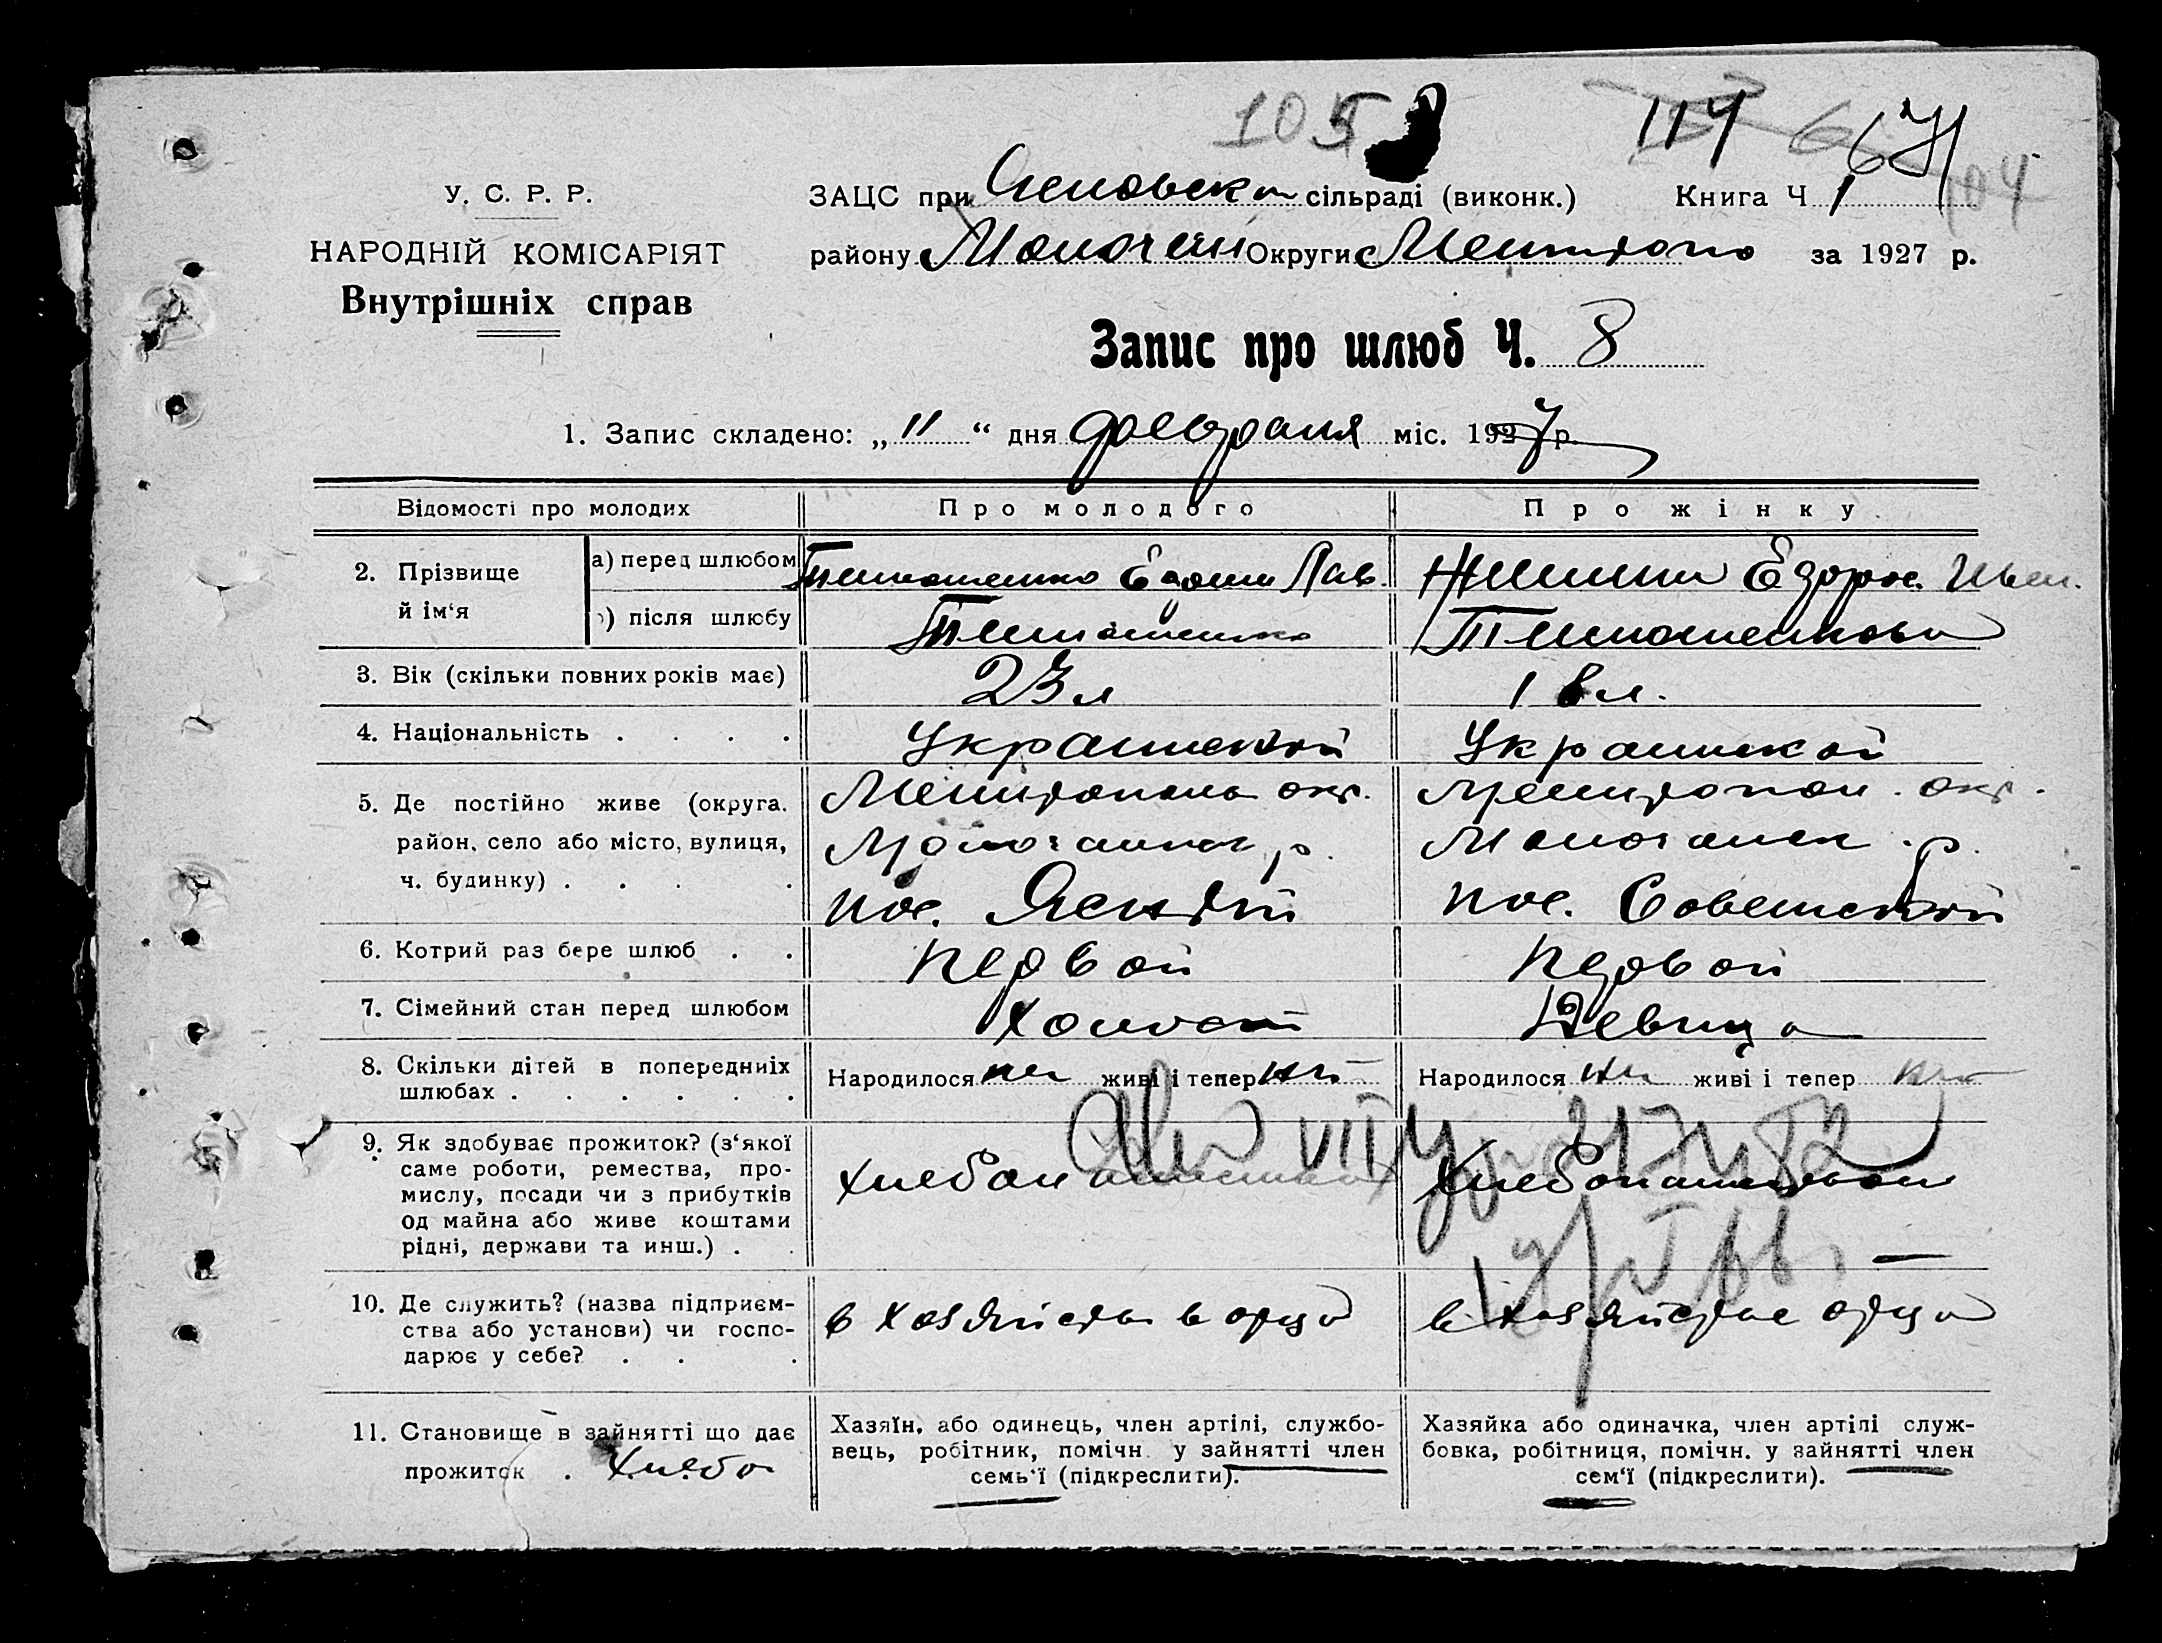 105
114
671
104
У. С. Р. Р.
НАРОДНІЙ КОМІСАРІЯТ
Внутрішніх справ
ЗАЦС при сільраді (виконк.) Книга Ч 1
району Молочан Округи Мелитопо за 1927 р.
Запис про шлюб Ч. 8
1. Запис складено: „ 11 “ дня февраля міс. 1927 р.
Відомості про молодих Про молодого Про жінку
2. Прізвище й ім‘я
а) перед шлюбом Тимошенко Лав.
б) після шлюбу Тимошенко Тимошенкова
3. Вік (скільки повних років має) 23 л 18 л.
4. Національність . . . . Украинской Украинской
5. Де постійно живе (округа, Мелитополь окр. Мелитопол. окр.
район, село або місто, вулиця, Молочанск р. Молочанск. р.
ч. будинку) . . . . пос. пос. Советский
6. Котрий раз бере шлюб . . Первой Первой
7. Сімейний стан перед шлюбом Холост Девица
8. Скільки дітей в попередниіх Народилося нет живі і тепер нет Народилося нет живі і тепер нет
шлюбах . . . . . .
9. Як здобуває прожиток? (з‘якої
саме роботи, ремества, про-
мислу, посади чи з прибутків
од майна або живе коштами
рідні, держави та инш.) . .
10. Де служить? (назва підприєм-
ства або установи) чи госпо-
дарює у себе? . . .
в хозяйстве отца в хозяйстве отца
11. Становище в зайнятті що дає
прожиток . хлебо
Хазяїн, або одинець, член артілі, службо-
вець, робітник, помічн. у зайнятті член
семь‘ї (підкреслити).
Хазяйка або одиначка, член артілі служ-
бовка, робітниця, помічн. у зайнятті член
сем‘ї (підкреслити).